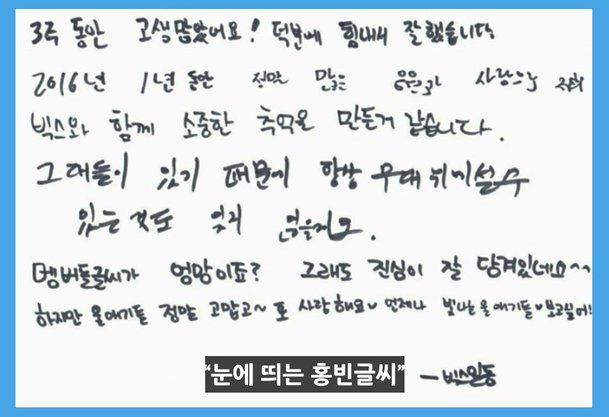 3주 동안 고생많았어요! 덕분에 힘내서 잘 했습니다
2016년 1년 동안 정말 많은 응원과 사랑으로 저희
빅스와 함께 소중한 추억을 만든거 같습니다.
그대들이 있기 때문에 항상 무대 위에 설 수
있는 것도 잊지 않을게요.
멤버들글씨가 엉망이죠? 그래도 진심이 잘 담겨있네요~~
하지만 울애기들 정말 고맙고~ 또 사랑해요♥ 언제나 빛나는 울애기들♥보고싶어!
“눈에 띄는 홍빈글씨”
-빅스일동